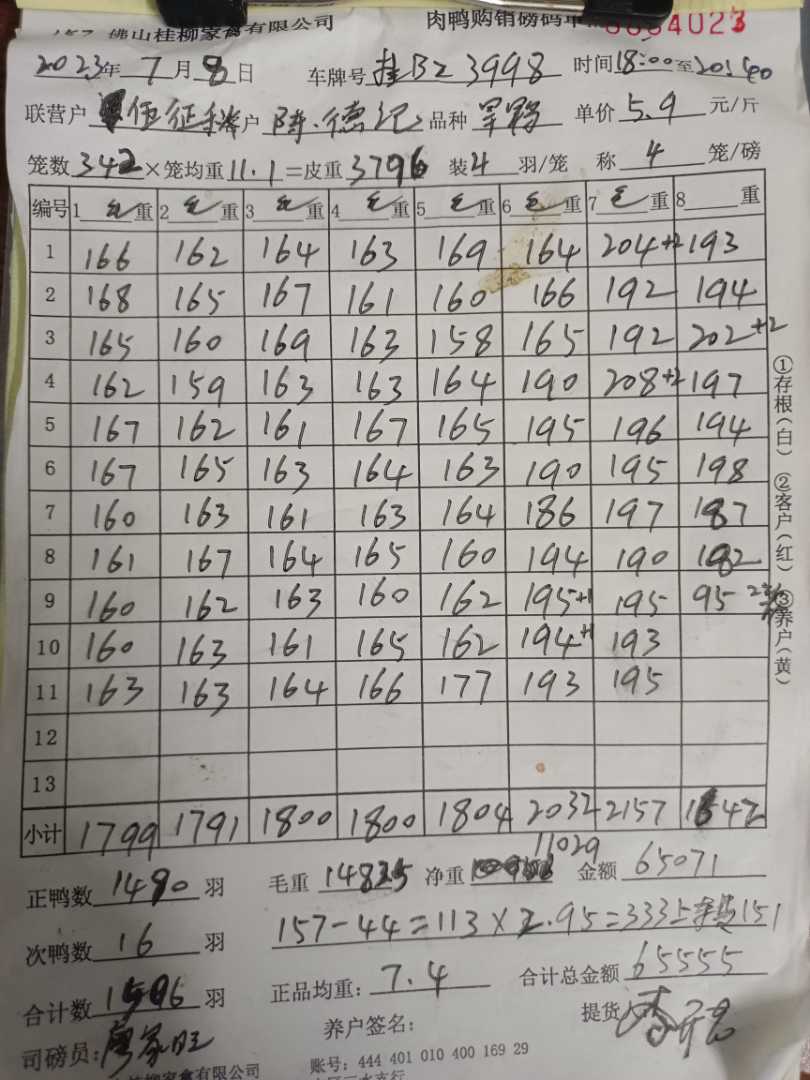 佛山桂柳家禽有限公司 肉鸭购销磅码单
2023年 7月 8日 车牌号 桂BZ 3998 时间 18:00至20:40
联营户 伍征 户 陈德记 品种 单价 5.9 元/斤
笼数 342 ×笼均重 11.1 =皮重 3796 装 4 羽/笼 称 4 笼/磅
编号 1 重 2 重 3 重 4 重 5 重 6 重 7 重 8 重
1 166 162 164 163 169 164 204+2 193
2 168 165 167 161 160 166 192 194
3 165 160 169 163 158 165 192 202+2
4 162 159 163 163 164 190 208+2 197
5 167 162 161 167 165 195 196 194
6 167 165 163 164 163 190 195 198
7 160 163 161 163 164 186 197 187
8 161 167 164 165 160 194 190 182
9 160 162 163 160 162 195+1 195 95
10 160 163 161 165 162 194+1 193
11 163 163 164 166 177 193 195
12
13
小计 1799 1791 1800 1800 1804 2032 2157 1642
正鸭数 1490 羽 毛重 14825 净重 11029 金额 65071
157-44=113×2.95=333 151
次鸭数 16 羽
合计数 1506 羽 正品均重: 7.4 合计总金额 65555
养户签名: 提货人
司磅员: 廖家旺
账号: 444 401 010 400 169 29
①存根(白) ②客户(红) ③养户(黄)